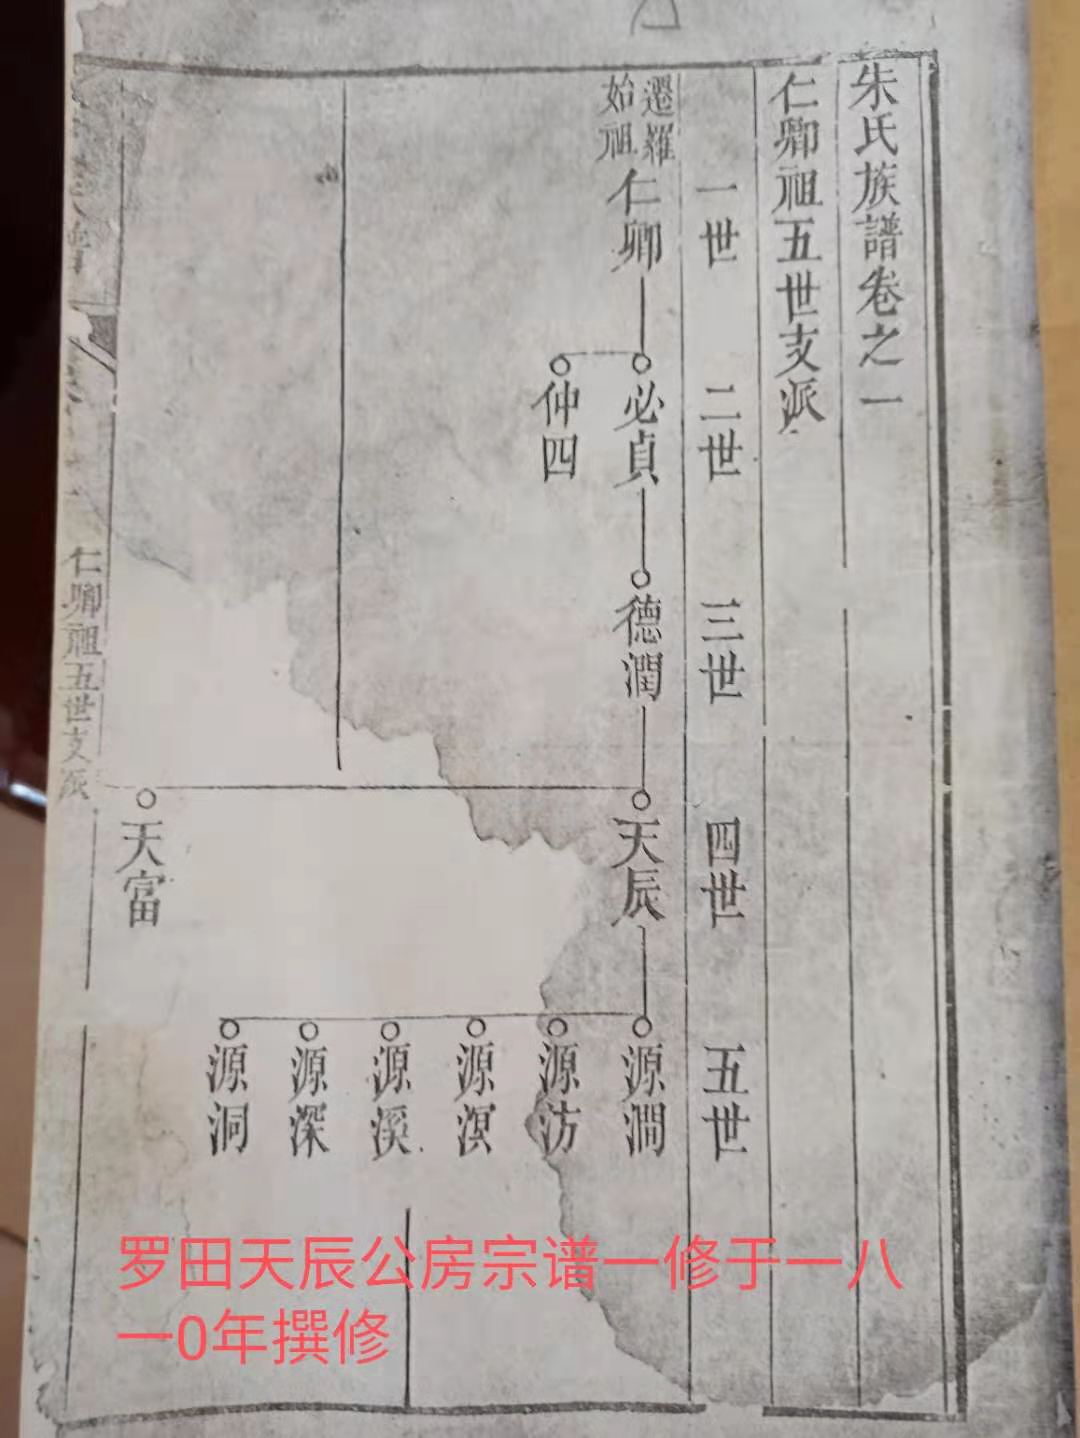 朱氏族譜卷之一
仁卿祖五世支派
一世
二世
三世
四世
五世
遷羅
始祖
仁卿
必貞
仲四
德潤
天辰
天富
源澗
源汸
源溟
源溪
源深
源洞
仁卿祖五世支派
罗田天辰公房宗谱一修于一八
一0年撰修